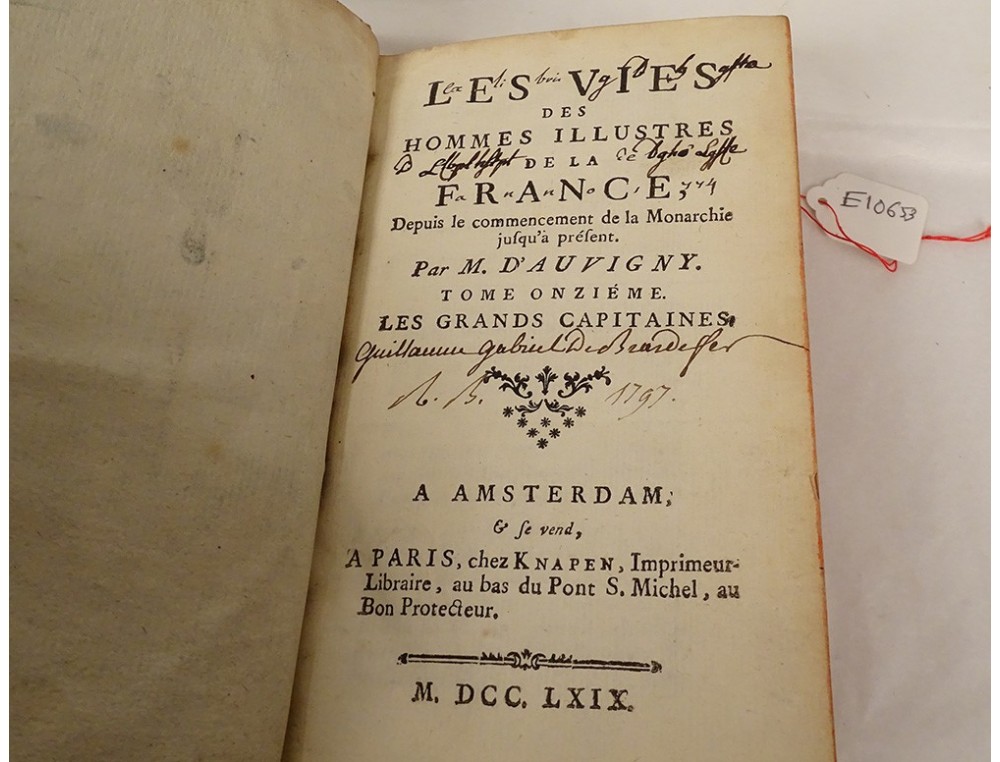 LES VIES
DES
HOMMES ILLUSTRES
DE LA
FRANCE,
Depuis le commencement de la Monarchie
juſqu'à préſent.
Par M. D'AUVIGNY.
TOME ONZIÉME.
LES GRANDS CAPITAINES.
Guillaume Gabriel De
1797.
A AMSTERDAM;
& ſe vend,
A PARIS, chez KNAPEN, Imprimeur-
Libraire, au bas du Pont S. Michel, au
Bon Protecteur.
M. DCC. LXIX.
E10653